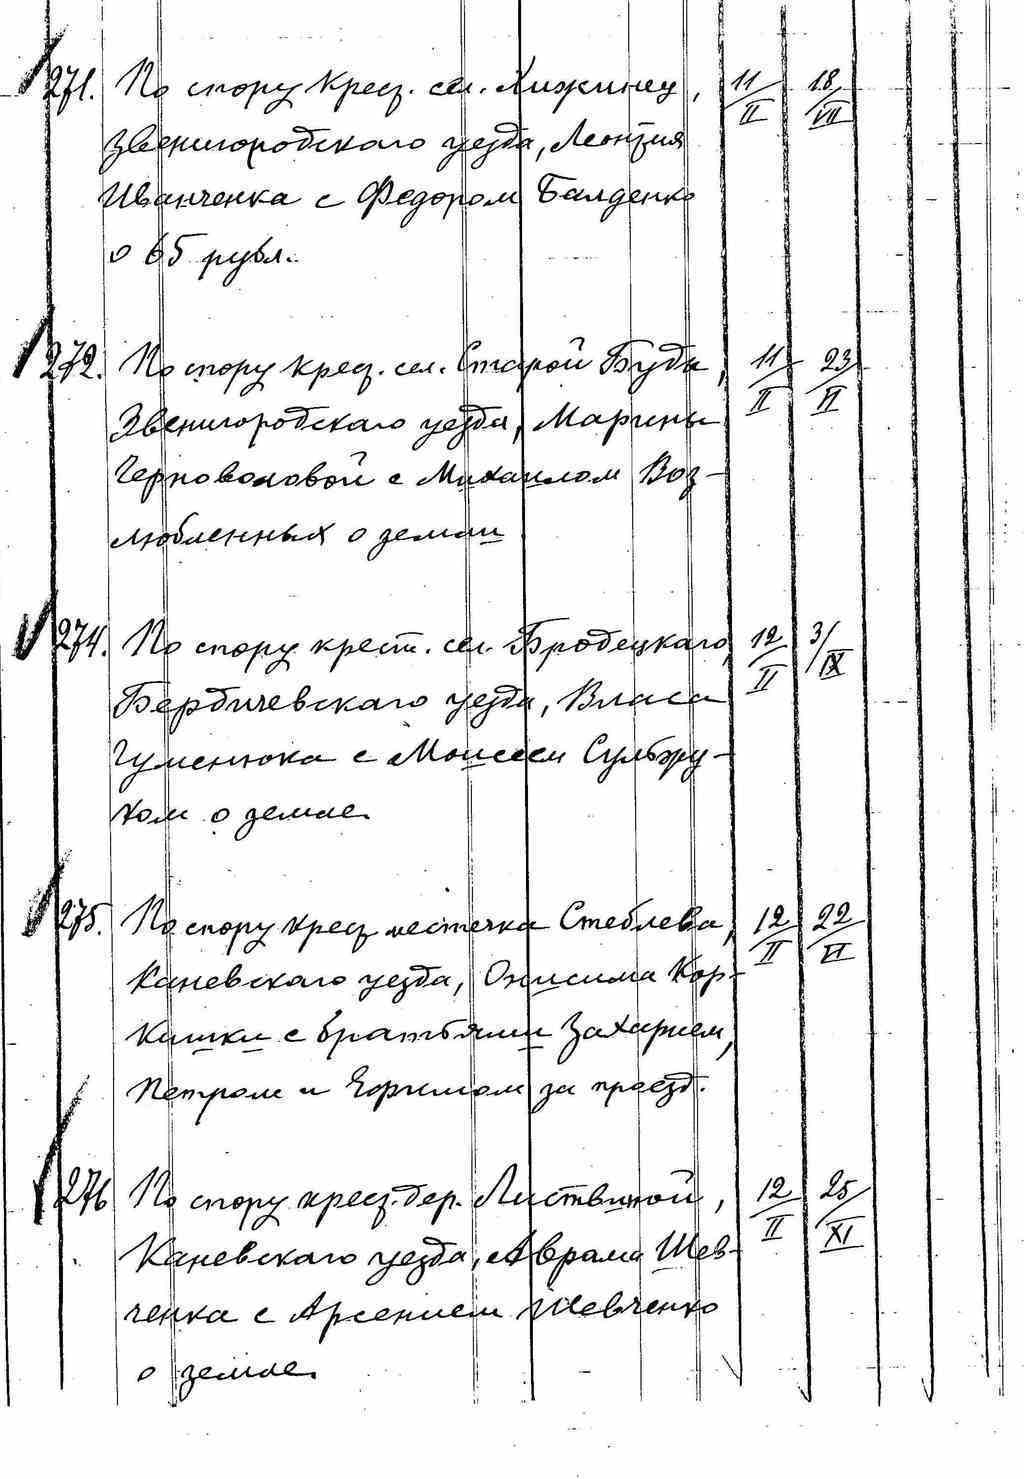 271. По спору крест. сел. Хижинец, 11/II 18/VII
Звенигородского уезда, Леонтия
Иванченка с Федором Балденко
о 65 рубл.
272. По спору крест. сел. Старой Буды, 11/II 23/VI
Звенигородского уезда, Марины
Черноволовой с Михаилом Воз-
любленных о земли
274. По спору крест. сел. Бродецкаго, 12/II 3/IX
Бердичевскаго уезда, Власа
Гуменюка с Моисеем Сульжу-
ком о земле.
275. По спору крест. местечка Стеблева, 12/II 22/VI
Каневскаго уезда, Онисима Кор-
кишки с братьями Захарием,
Петром и Ефимом за проезд.
276 По спору крест. дер. Листвиной, 12/II 25/XI
Каневскаго уезда, Аврама Шев-
ченка с Арсением Шевченко
о земле.